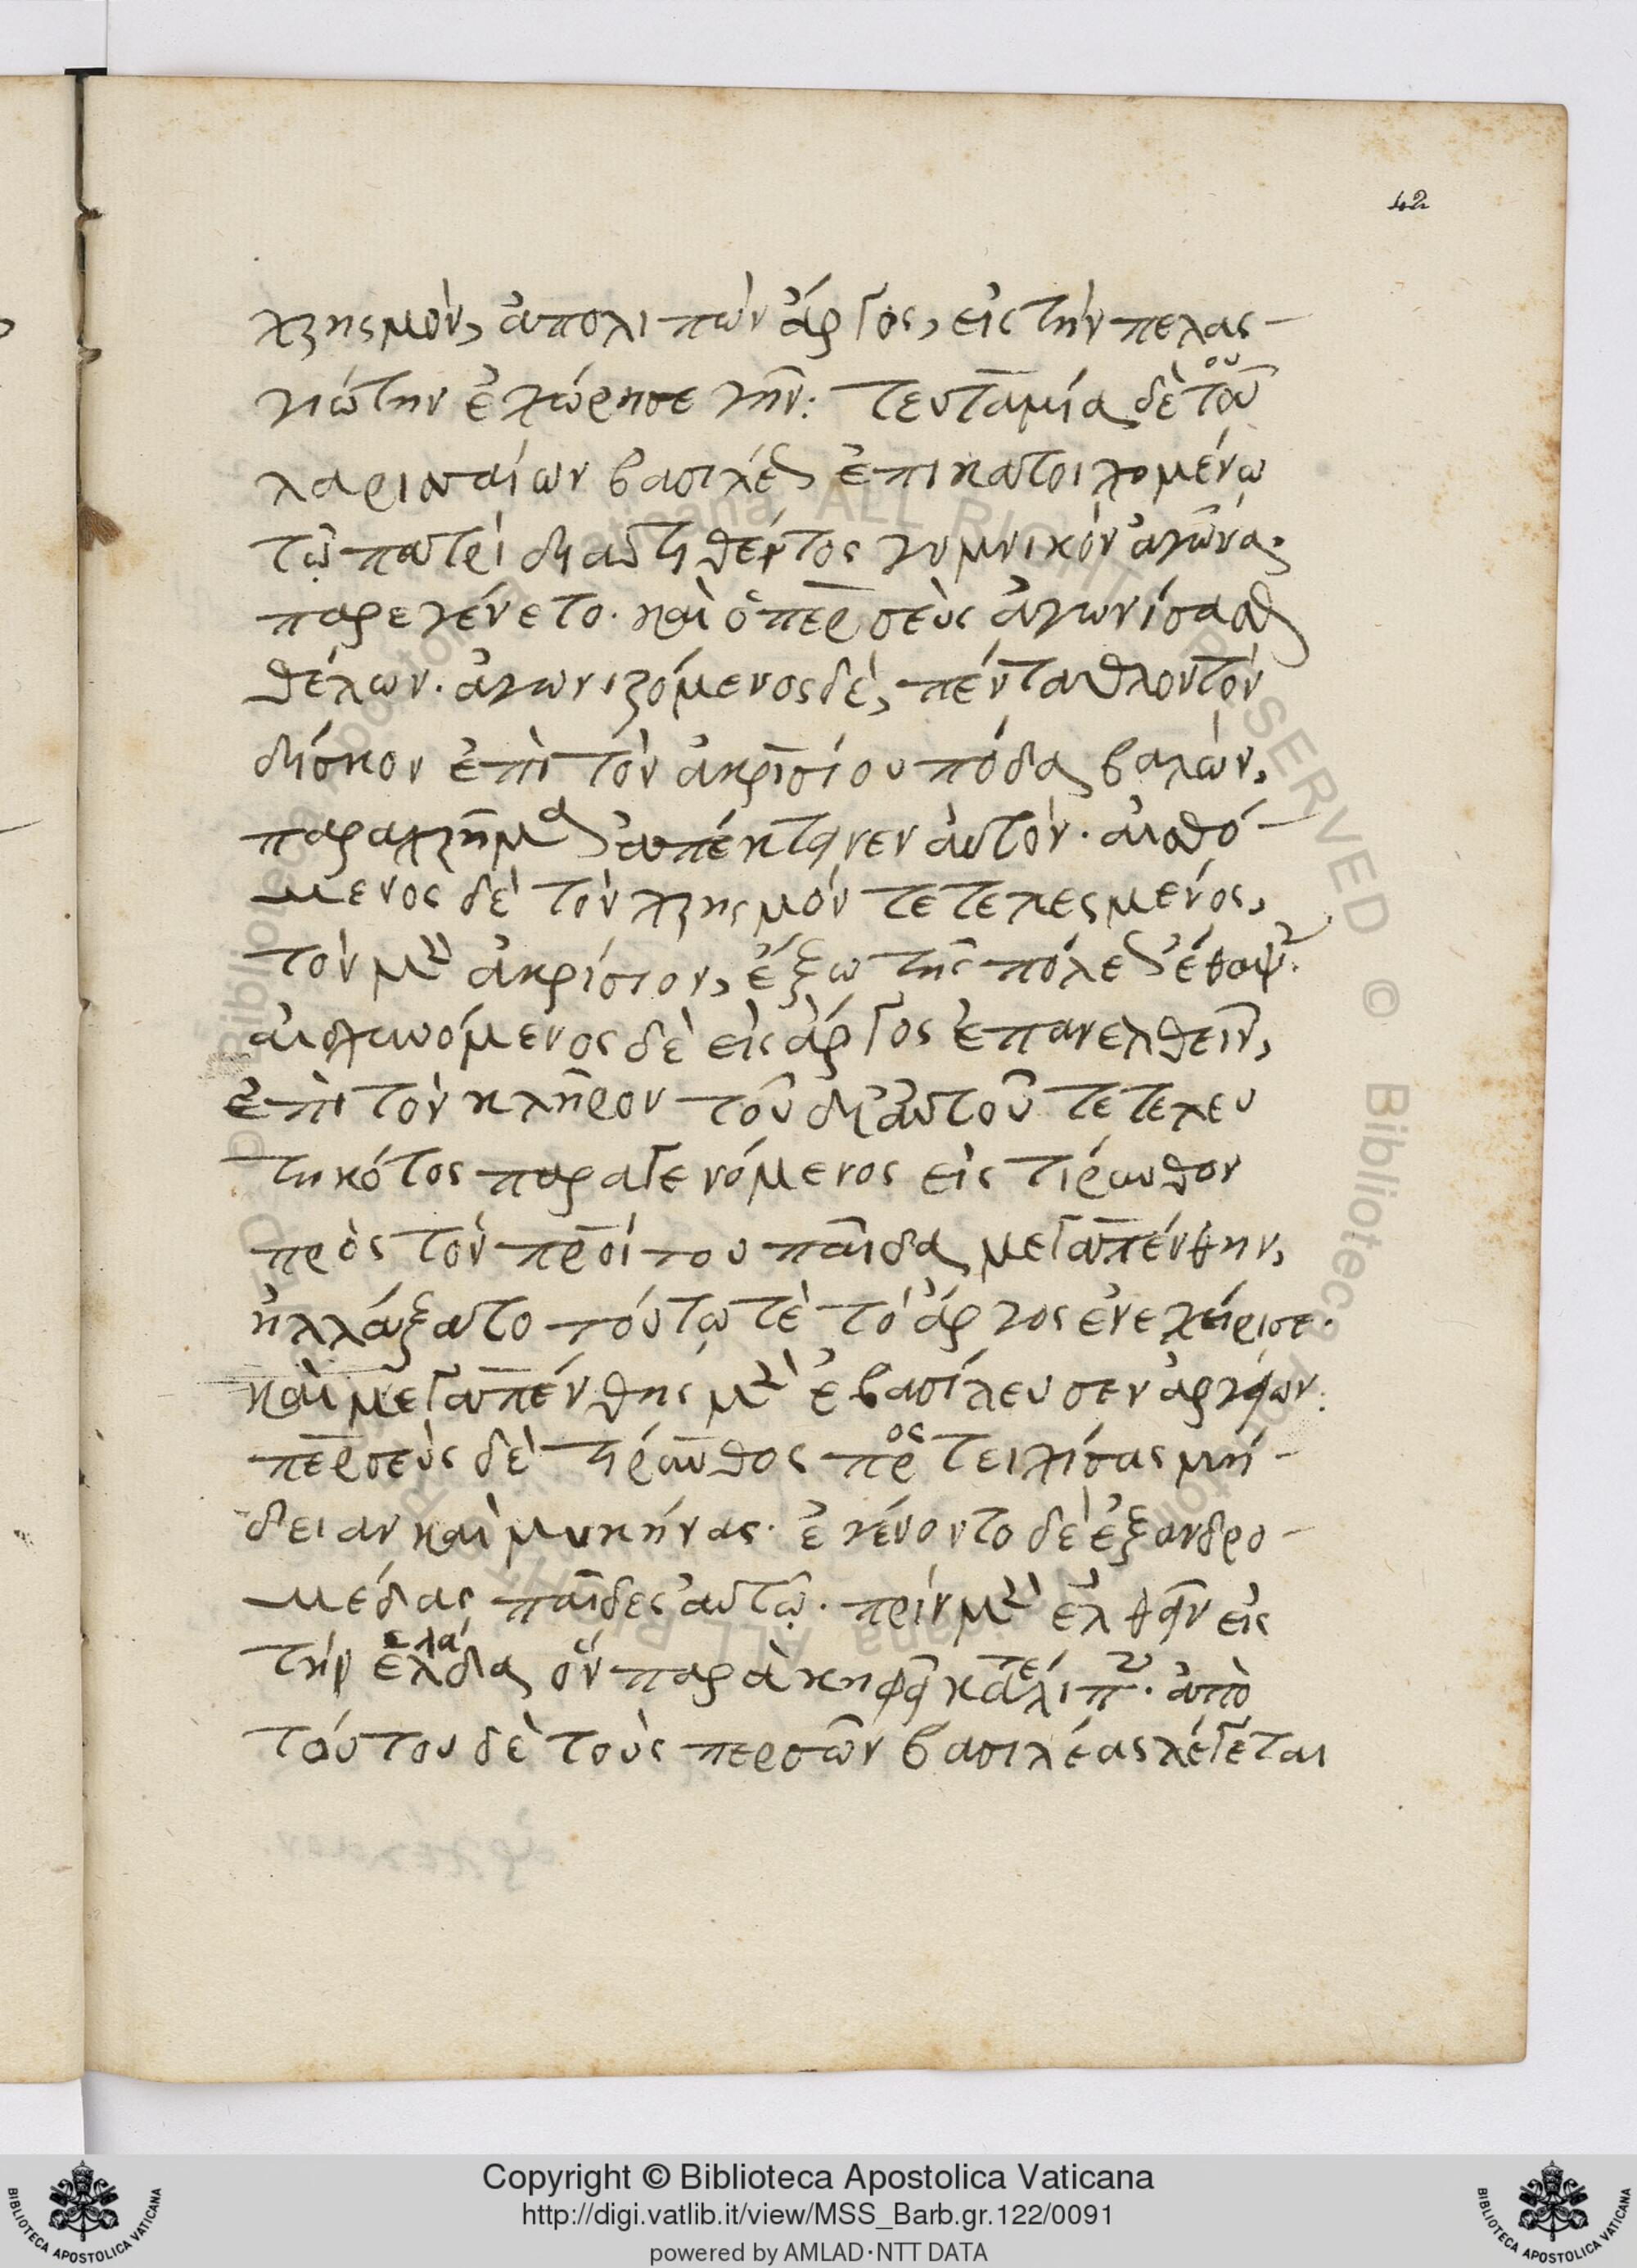 42
χρησμὸν, ἀπολιπὼν ἄργος, εἰς τὴν πελασ-
γιώτην ἐχώρησε γῆν: τευταμία δὲ τοῦ
λαρισσαίων βασιλέως ἐπικατοιχομένω
τῷ πατρὶ διατιθέντος γυμνικὸν ἀγῶνα·
παρεγένετο· καὶ ὁ περσεὺς ἀγωνίσασθαι
θέλων. ἀγωνιζόμενος δὲ, πένταθλον τὸν
δίσκον ἐπὶ τὸν ἀκρισίου πόδα βαλὼν,
παραχρῆμα ἀπέκτεινεν ἀυτόν. αἰσθό-
μενος δὲ τὸν χρησμὸν τετελεσμένος,
τὸν μὲν ἀκρίσιον, ἔξω τῆς πόλεως ἔθαψεν.
αἰσχυνόμενος δὲ εἰς ἄργος ἐπανελθεῖν,
ἐπὶ τὸν κλῆρον τοῦ δι' ἀυτοῦ τετελευ
τηκότος παραγενόμενος εἰς τίρυνθον
πρὸς τὸν προίτου παῖδα μεγαπένθην,
ἠλλάξατο τόυτω τὲ τὸ ἄργος ἐνεχείρισε.
καὶ μεγαπένθης μὲν ἐβασίλευσεν ἀργείων:
περσεὺς δὲ τίρυνθος προστειχίσας μή-
δειαν καὶ μυκήνας. ἐγένοντο δὲ ἐξ ανδρο-
μέδας παῖδες ἀυτῷ. πρὶν μὲν ἐλθεῖν εἰς
τὴν ἑλλάδα ὃν παρὰ κηφεῖ κατέλιπεν. ἀπὸ
τόυτου δὲ τοὺς περσῶν βασιλέας λέγεται
Copyright © Biblioteca Apostolica Vaticana
http://digi.vatlib.it/view/MSS_Barb.gr.122/0091
powered by AMLAD·NTT DATA